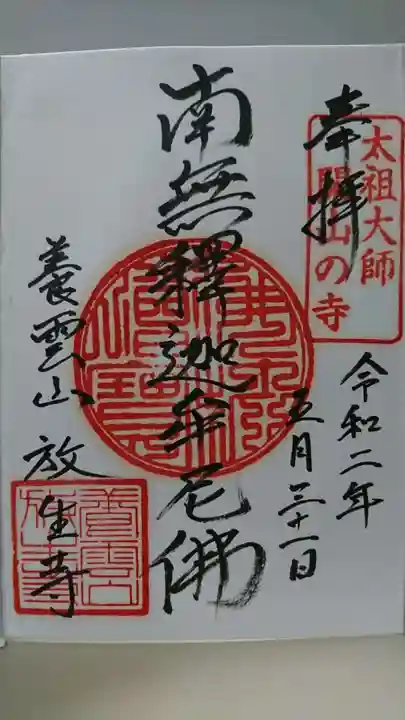 奉拝
太祖大師
開山の寺
令和二年
五月三十一日
南無釋迦牟尼佛
養雲山 放生寺